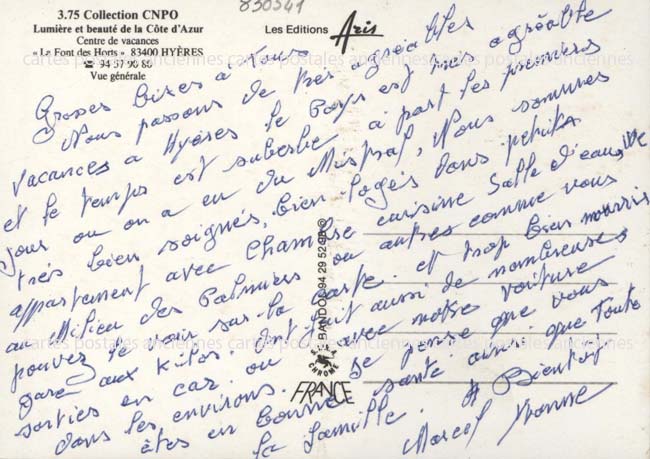 830541
3.75 Collection CNPO
Lumière et beauté de la Côte d'Azur
Centre de vacances
« Le Font des Horts » 83400 HYÈRES
☎ 94 57 90 80
Vue générale
Les Editions Aris
Grosses bises a tous
Nous passons de très agréables
vacances a Hyères le Pays est très agréable
et le temps est suberbe a part les premiers
jour ou on a eu du Mistral, Nous sommes
très bien soignés, bien logés dans petits
appartement avec Chambre cuisine Salle d'eau, We
au Milieu des Palmiers ou autres comme vous
pouvez le voir sur la carte. et trop bien nourris
gare aux kilos. Ont fait aussi de nombreuses
sorties en car ou avec notre voiture
dans les environs. Je pense que vous
êtes en bonne santé ainsi que toute
la famille. A Bientot
Marcel Yvonne
BANDOL 94 29 52
CHROME
FRANCE
cartes postales anciennes cartes postales anciennes cartes postales anciennes
cartes postales anciennes cartes postales anciennes cartes postales anciennes